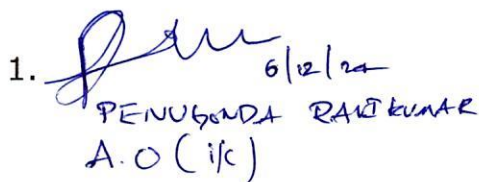 1.
6/12/24
PENUGONDA RAVI KUMAR
A.O (i/c)